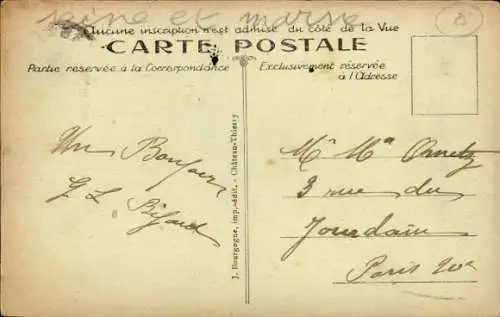 seine et marne
Aucune inscription n'est admise du côté de la Vue
CARTE POSTALE
Partie réservée à la Correspondance
Exclusivement réservée
à l'Adresse
Un Bonjour
G L
J. Bourgogne, imp.-édit. - Château-Thierry
Mr Me
3 rue du
Jourdain
Paris 20e